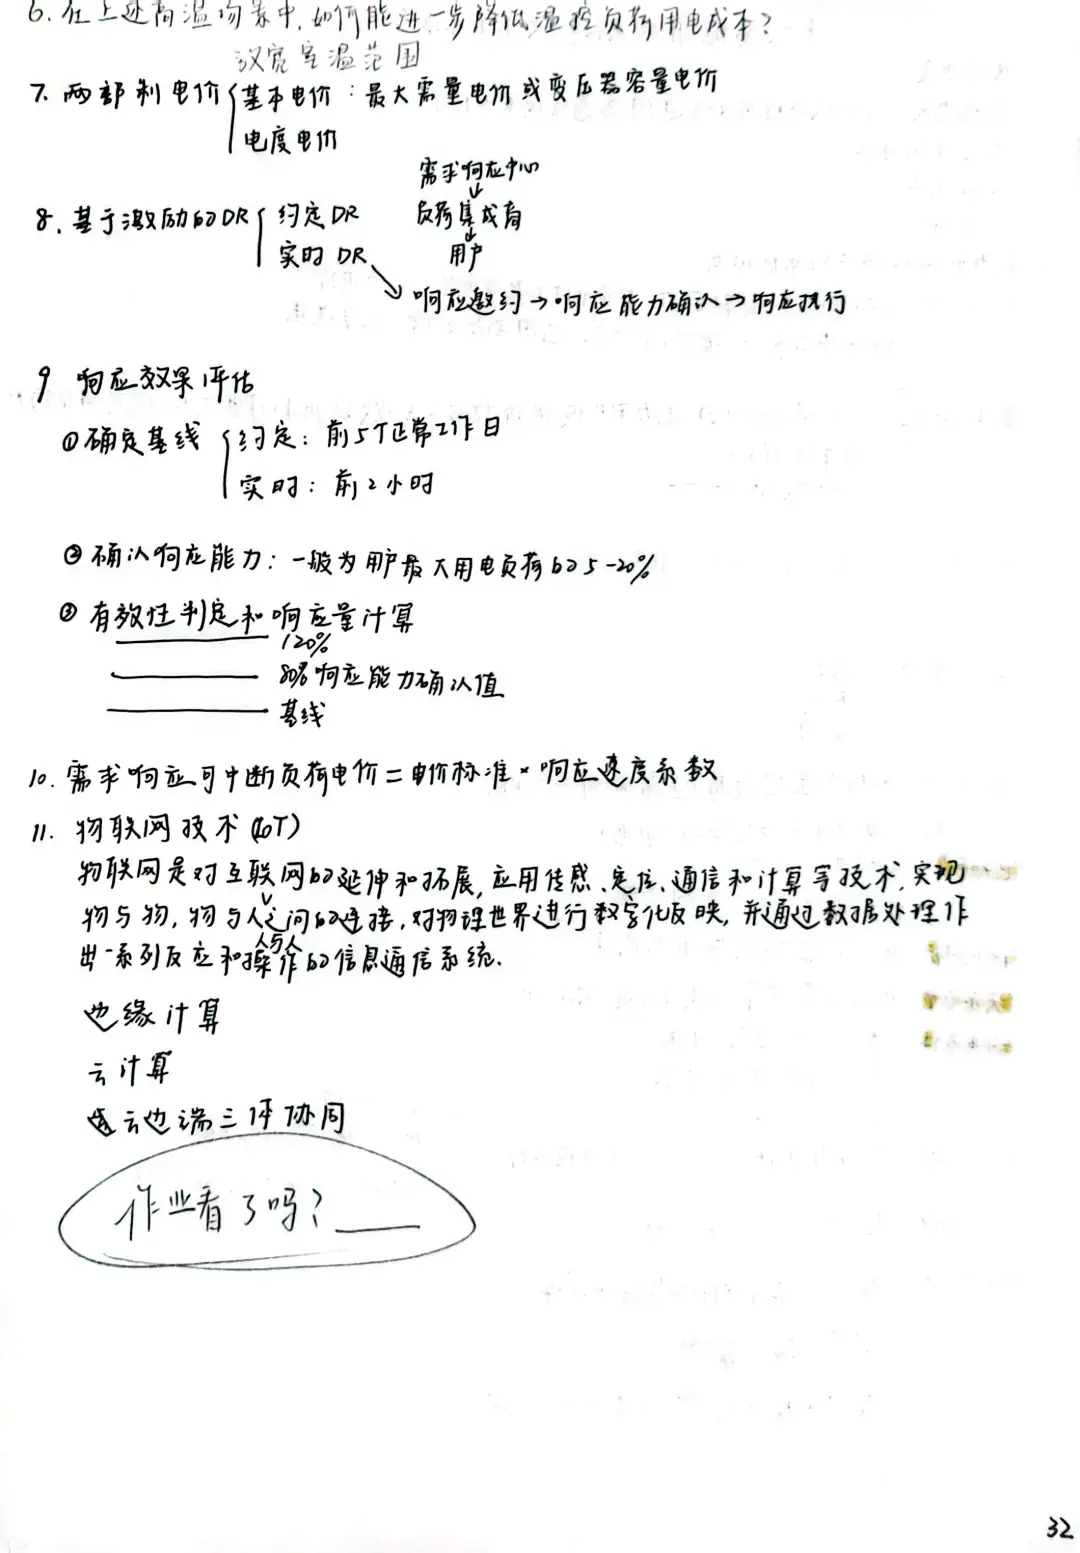 6. 在上述高温场景中,如何能进一步降低温控负荷用电成本?
放宽室温范围
7. 两部制电价 { 基本电价:最大需量电价或变压器容量电价
电度电价
需求响应中心
↓
8. 基于激励的DR { 约定DR 负荷集成商
↓
实时DR 用户
↘ 响应邀约→响应能力确认→响应执行
9 响应效果评估
①确定基线 { 约定:前5个正常工作日
实时:前2小时
②确认响应能力:一般为用户最大用电负荷的5-20%
③有效性判定和响应量计算
120%
80%响应能力确认值
基线
10. 需求响应可中断负荷电价=电价标准×响应速度系数
11. 物联网技术(IoT)
物联网是对互联网的延伸和拓展,应用传感、定位、通信和计算等技术,实现
物与物,物与人之间的连接,对物理世界进行数字化反映,并通过数据处理作
人与人
出一系列反应和操作的信息通信系统.
边缘计算
云计算
云边端三体协同
作业看了吗?
32